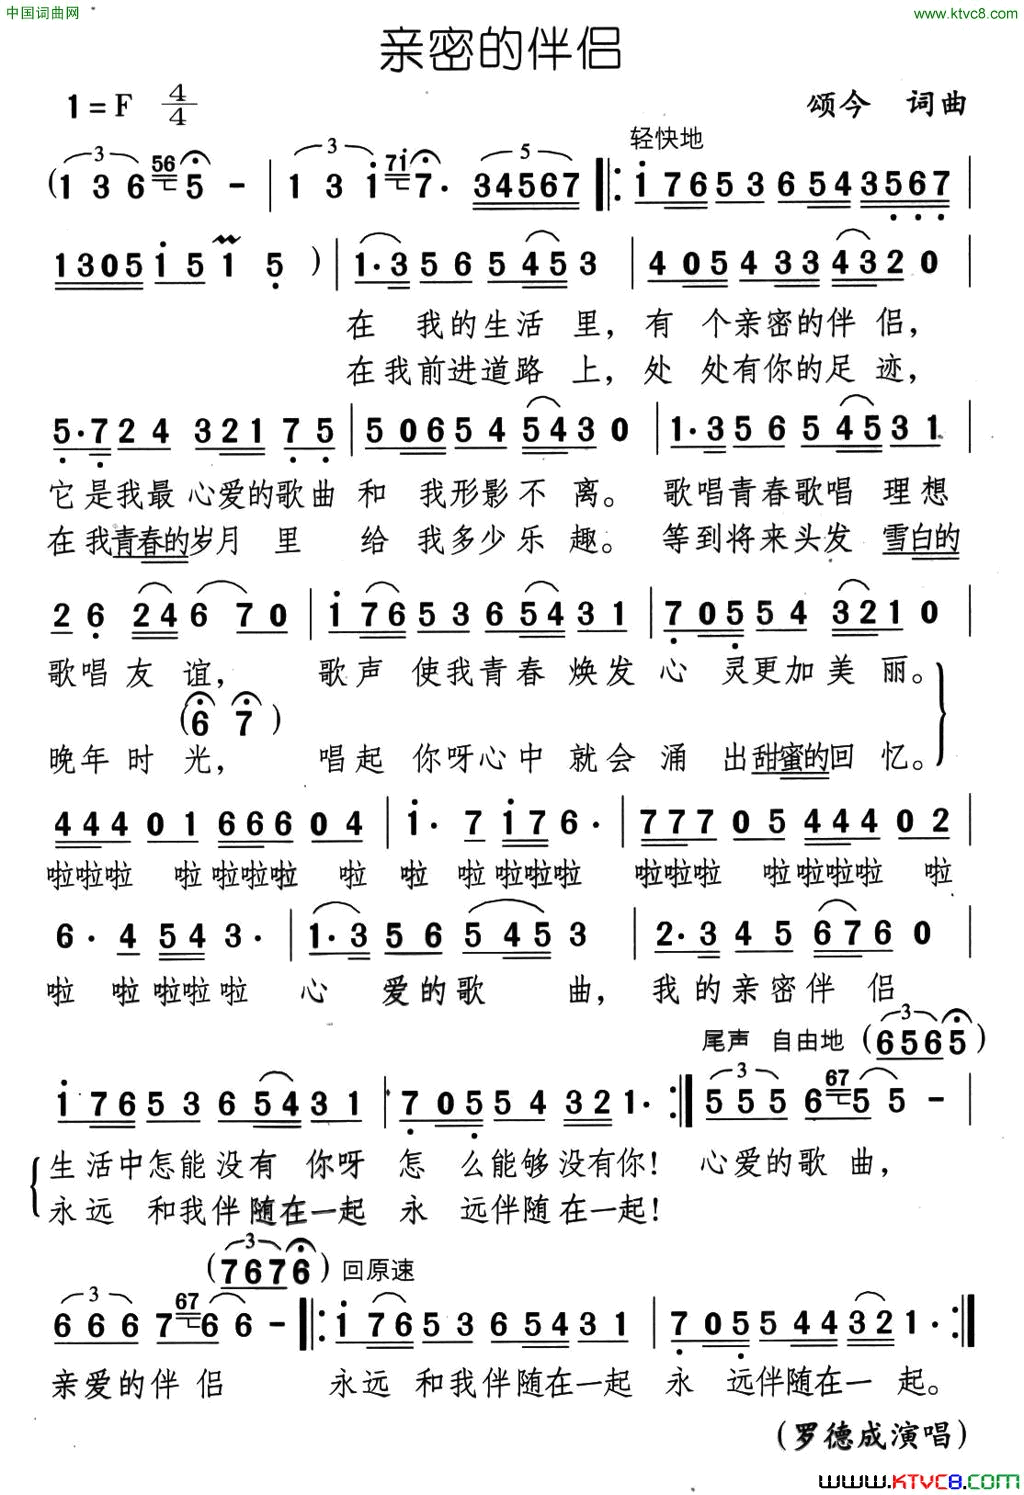 中国词曲网
www.ktvc8.com
亲密的伴侣
1=F 4/4
颂今 词曲
轻快地
(1 3 6 56 5 - | 1 3 i 7i 7· 34567 |: i 76 53 6 54 3567 |
1305 i 5 1 5 ) | 1·3 56 5 45 3 | 4 05 4 33 432 0 |
在 我的生活 里, 有 个亲密的伴 侣,
在我前进道路 上, 处 处有你的足 迹,
5·7 24 321 75 | 5 06 54 5430 | 1·3 56 5 4531 |
它是我最 心爱的歌曲 和 我形影不 离。 歌唱青春歌唱 理想
在我青春的岁月 里 给 我多少乐 趣。 等到将来头发 雪白的
2 6 24 6 7 0 | i 76 53 6 54 31 | 7 05 54 3210 |
歌唱 友 谊, 歌声 使我青春 焕发 心 灵更加美 丽。
(6 7 )
晚年 时 光, 唱起 你呀心中 就会 涌 出甜蜜的回 忆。
444 01 666 04 | i· 7 i7 6· | 777 05 444 02 |
啦啦啦 啦 啦啦啦 啦 啦 啦 啦啦啦 啦啦啦 啦啦啦啦 啦
6· 4 54 3· | 1·3 56 5 45 3 | 2·3 45 676 0 |
啦 啦 啦啦 啦 心 爱的歌 曲, 我的亲密伴 侣
尾声 自由地 (6565)
i 76 53 6 54 31 | 7 05 54 321· :| 5 5 5 6 67 5 5 - |
生活中怎能没有 你呀 怎 么能够没有你! 心爱的歌 曲,
永远 和我伴随在一起 永 远伴随在一起!
(7676) 回原速
6 6 6 7 67 6 6 - |: i 76 53 6 54 31 | 7 05 54 4321· :|
亲爱的伴 侣 永远 和我伴随在一起 永 远伴随在一 起。
(罗德成演唱)
www.KTVC8.com